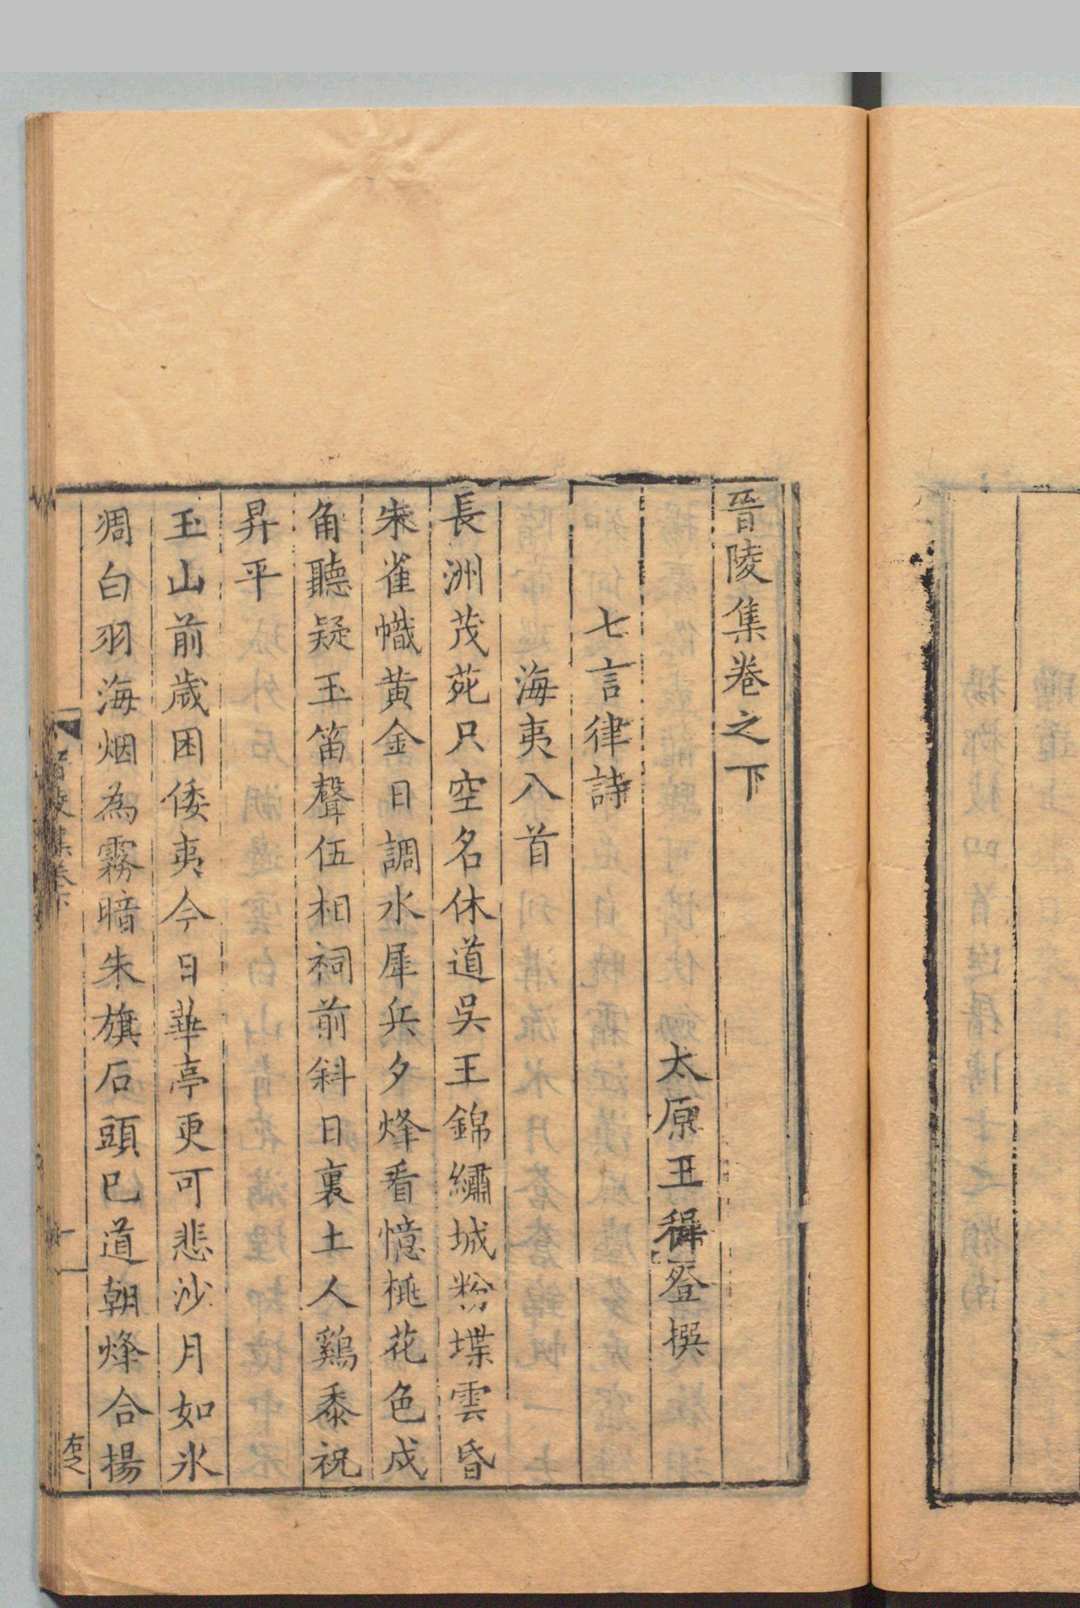 晉陵集卷之下
太原王穉登撰
七言律詩
海夷八首
長洲茂苑只空名休道吳王錦繡城粉堞雲昏
朱雀幟黃金日調水犀兵夕烽看憶桃花色戍
角聽疑玉笛聲伍相祠前斜日裏土人鷄黍祝
昇平
玉山前歲困倭夷今日華亭更可悲沙月如氷
凋白羽海烟為霧暗朱旗石頭已道朝烽合揚
晉陵集卷下
一